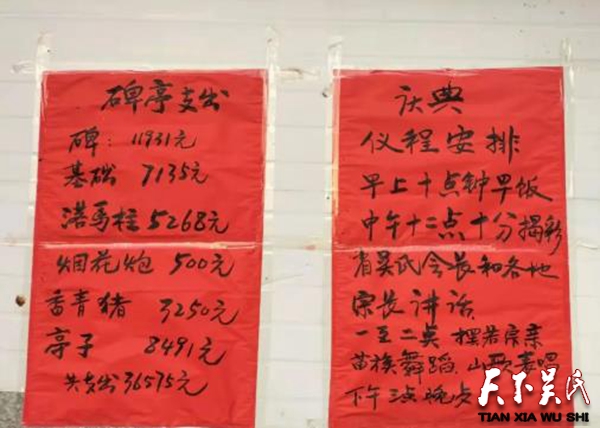 碑亭支出
碑：11931元
基础 7135元
滂馬柱 5268元
烟花炮 500元
香青猪 3250元
亭子 8491元
共支出36575元
庆典
仪程安排
早上十点钟早饭
中午十二点十分揭彩
省吴氏会长和各地
宗长讲话
一至二点 摆若宗亲
苗族舞蹈、山歌表唱
下午三点晚点
天下吴氏
TIAN XIA WU SHI